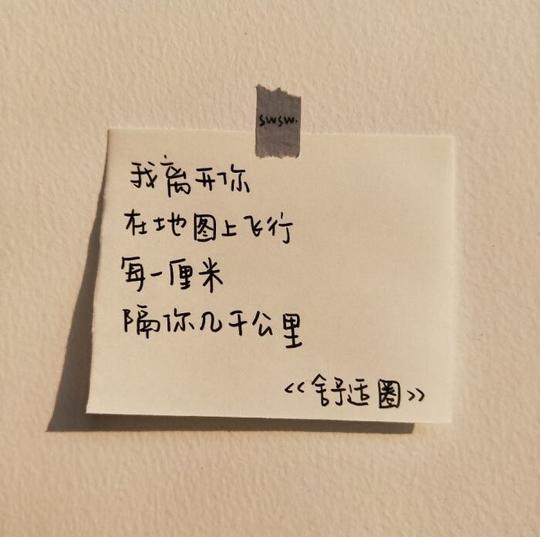 swsw.
我离开你
在地图上飞行
每一厘米
隔你几千公里
《舒适圈》